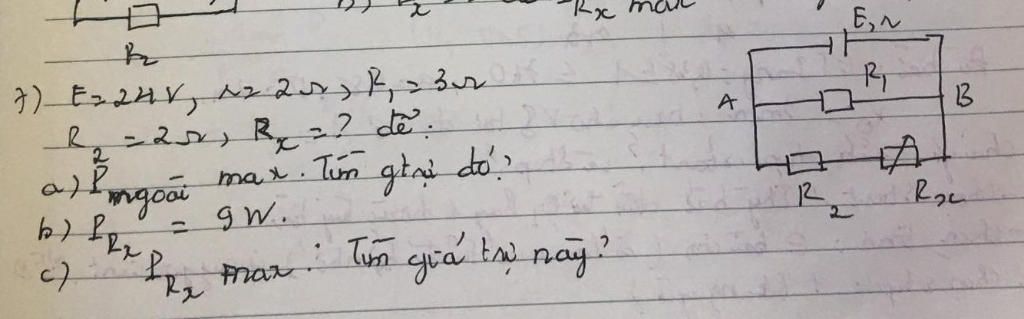 R₂
R_x max
7) E = 24V, r = 2Ω, R₁ = 3Ω
R₂ = 2Ω, R_x = ? để:
a) P_mgoài max. Tìm gtrị đó?
b) P_Rx = 9W.
c) P_Rx max. Tìm giá trị này?
E, r
R₁
A
B
R₂
R_x